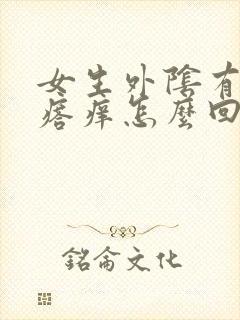 女生外陰有
瘩痒怎麼回
銘侖文化